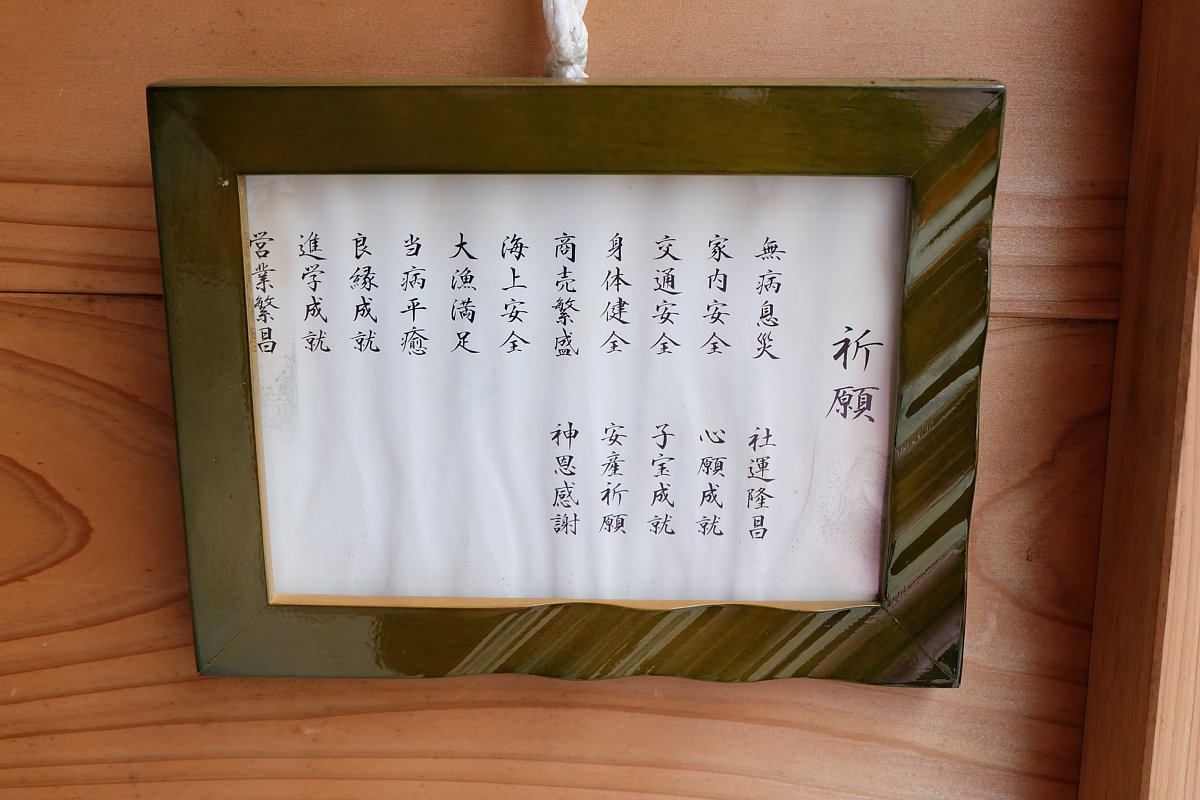 祈願
無病息災
家内安全
交通安全
身体健全
商売繁盛
海上安全
大漁満足
当病平癒
良縁成就
進学成就
営業繁昌
社運隆昌
心願成就
子宝成就
安産祈願
神恩感謝